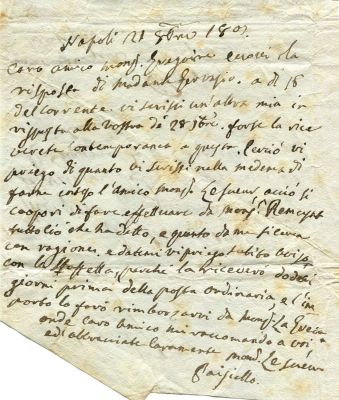 Napoli 21 8bre 180
Caro amico mons.r Gregoire eccovi la
risposta di Madama Gervasio. a dì 18
del corrente vi scrissi un'altra mia in
risposta alla vostra de' 28 7bre. forse la rice
verete contemporanea a questa. Perciò vi
priego di quanto vi scrissi nella medema di
farne inteso l'amico mons.r Le Sueur acciò si
coopri di fare effettuare da mons.r
tutto ciò che ha detto, e quanto da me si
con ragione, e datemi vi priego subito avviso
con la staffetta, perché la riceverò dodeci
giorni prima della posta ordinaria, e l'im
porto lo farò rimborzarvi da mons.r
onde caro amico mi raccomando a voi
ed abbracciate caramente mons.r Le Sueur
Paisiello.